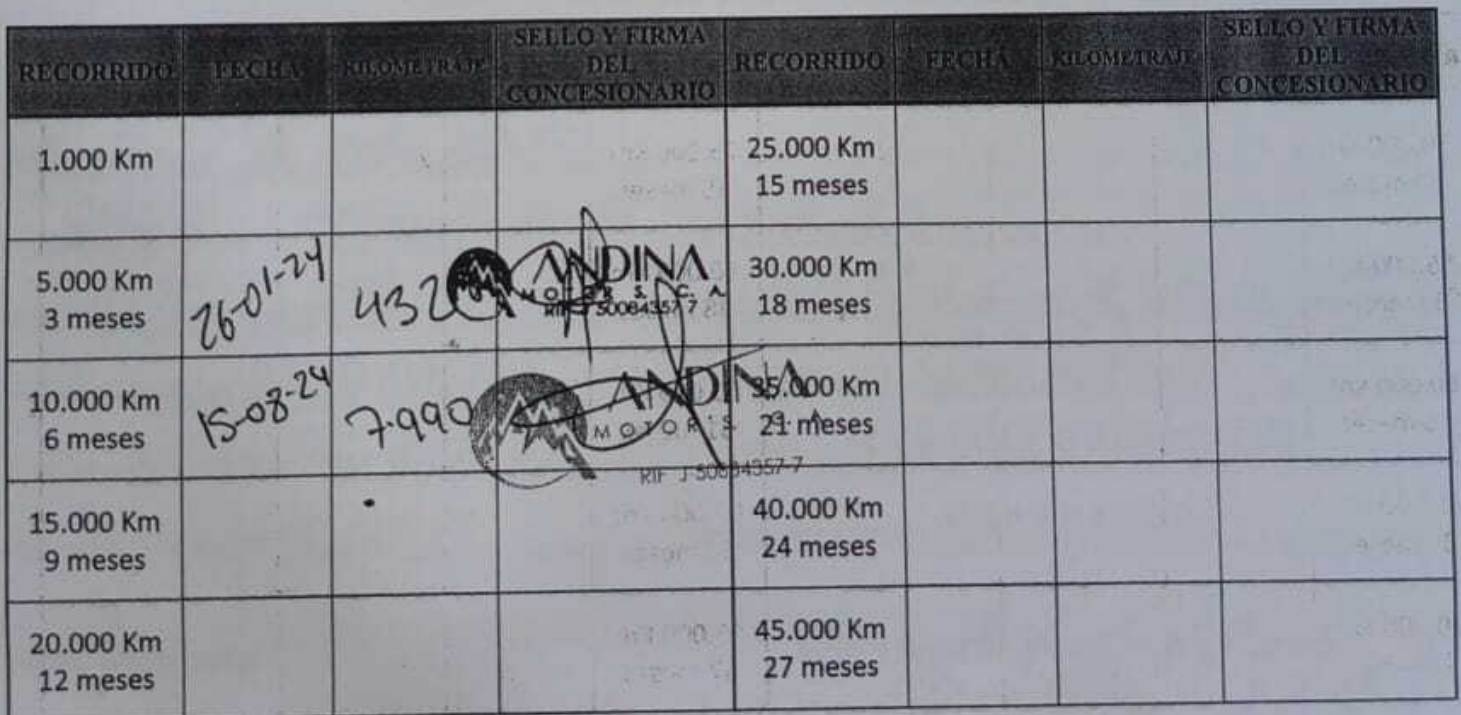 RECORRIDO FECHA KILOMETRAJE SELLO Y FIRMA DEL CONCESIONARIO RECORRIDO FECHA KILOMETRAJE SELLO Y FIRMA DEL CONCESIONARIO
1.000 Km
25.000 Km
15 meses
5.000 Km
3 meses
26-01-24
432
ANDINA
MOTORS, C.A.
RIF J-50084357-7
30.000 Km
18 meses
10.000 Km
6 meses
15-08-24
7.990
ANDINA
MOTORS C.A
RIF J-50084357-7
35.000 Km
21 meses
15.000 Km
9 meses
40.000 Km
24 meses
20.000 Km
12 meses
45.000 Km
27 meses